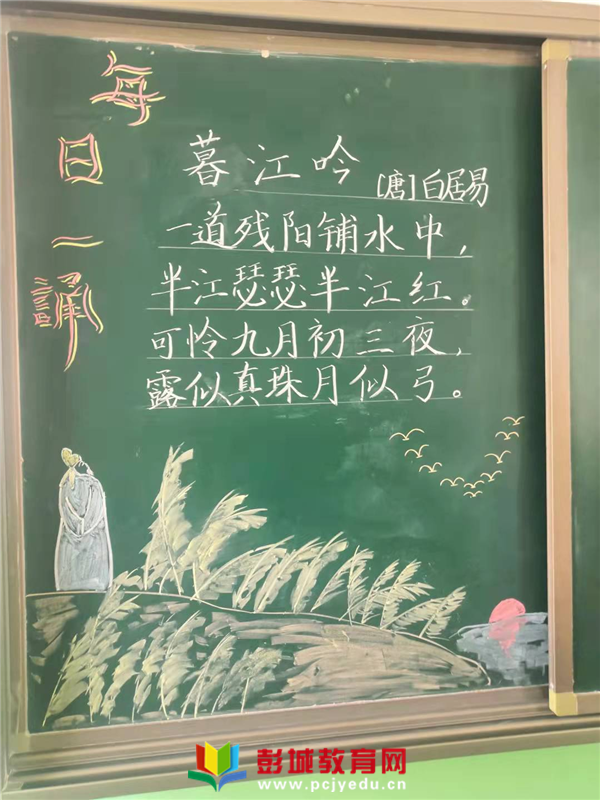 每日一誦
暮江吟
[唐]白居易
一道残阳铺水中，
半江瑟瑟半江红。
可怜九月初三夜，
露似真珠月似弓。
彭城教育网
www.pcjyedu.cn